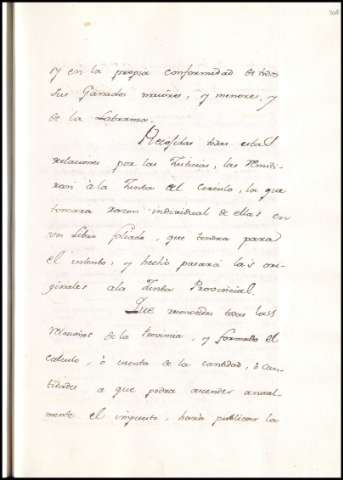 y en la propia conformidad de todos
sus Ganados maiores, y menores, y
de la Labranza.
Recogidas todas estas
relaciones por las Justicias, las remiti-
ran à la Junta del Concejo, la que
tomara razon individual de ellas en
un Libro foliado, que tendra para
el intento, y hecho pasará las ori-
ginales ala Junta Provincial.
Que reconocidas todas las
relaciones de la Provincia, y formado el
calculo, ò cuenta de la cantidad, ò can-
tidades a que podra ascender anual-
mente el impuesto, hara publicar la